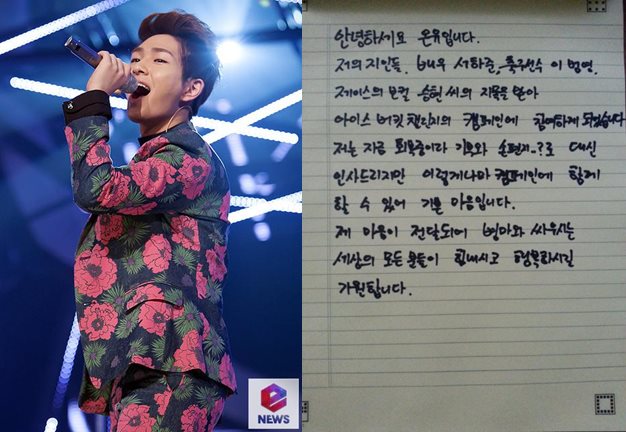 NEWS
안녕하세요 온유입니다.
저의 지인들. 배우 서하준, 축구선수 이 범영.
제이스의 보컬 승현 씨의 지목을 받아
아이스 버킷 챌린지의 캠페인에 참여하게 되었습니다
저는 지금 회복중이라 기부와 손편지..?로 대신
인사드리지만 이렇게나마 캠페인에 함께
할 수 있어 기쁜 마음입니다.
제 마음이 전달되어 병마와 싸우시는
세상의 모든분들이 힘내시고 행복하시길
기원합니다.